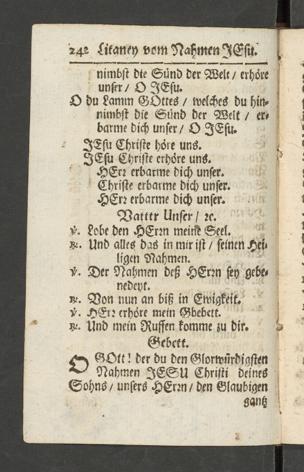 242 Litaney vom Nahmen JEsu.
nimbst die Sünd der Welt / erhöre
unser / O JEsu.
O du Lamm GOttes / welches du hin-
nimbst die Sünd der Welt / er-
barme dich unser / O JEsu.
JEsu Christe höre uns.
JEsu Christe erhöre uns.
HErr erbarme dich unser.
Christe erbarme dich unser.
HErr erbarme dich unser.
Vatter Unser / ꝛc.
℣. Lobe den HErrn meine Seel.
℟. Und alles das in mir ist / seinen Hei-
ligen Nahmen.
℣. Der Nahmen deß HErrn sey gebe-
nedeyt.
℟. Von nun an biß in Ewigkeit.
℣. HErr erhöre mein Gbebett.
℟. Und mein Ruffen komme zu dir.
Gebett.
O GOtt! der du den Glorwürdigsten
Nahmen JESU Christi deines
Sohns / unsers HErrn / den Glaubigen
gantz